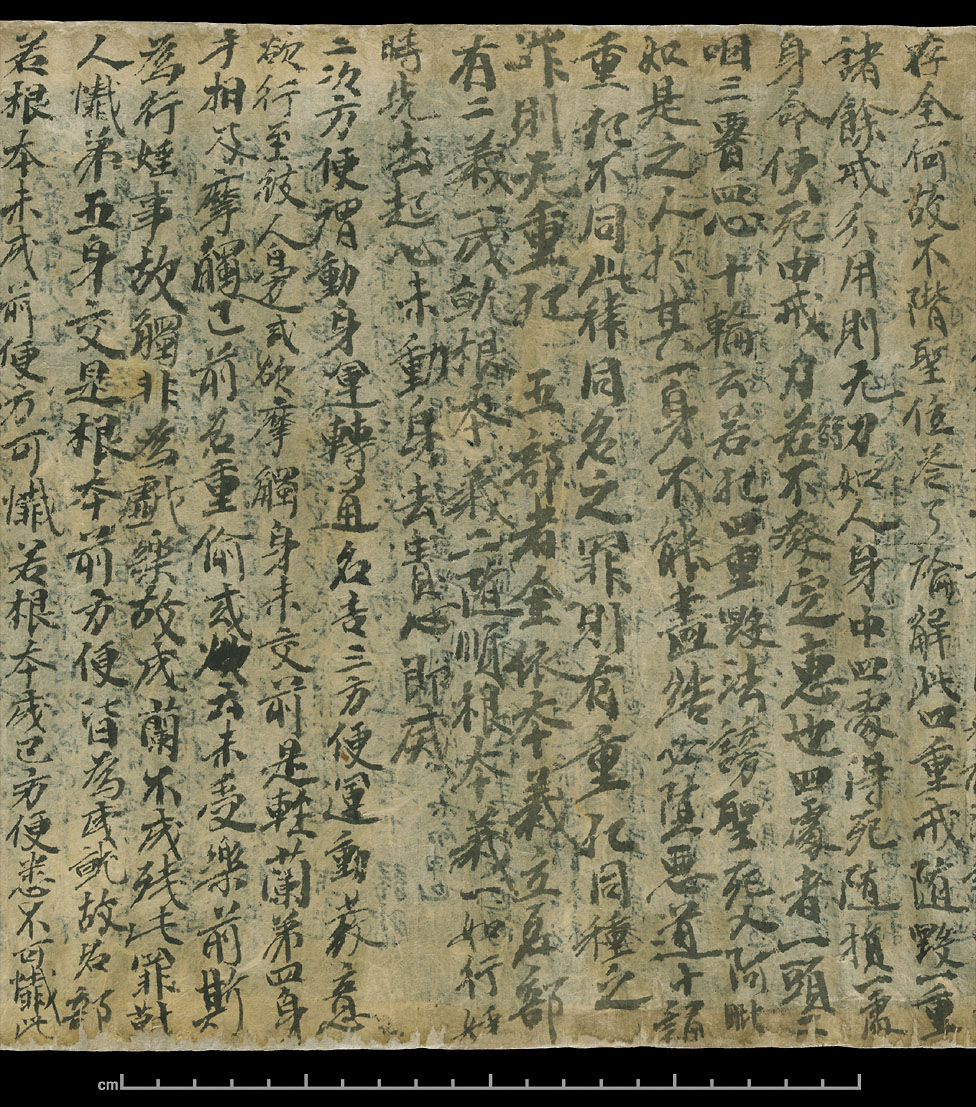 存全何故不階聖位答了論解此四重戒随毀一重
諸餘戒分用則无力如人身中四處得死随損一處
身命便死由戒力若不發定惠也四處者一頭二
咽三腎四心十輪云若犯四重毀法謗聖死入阿毗
如是之人於其一身不能盡結必堕惡道十誦
重犯不同此律同名之罪則有重犯同種之
罪則无重犯 五部者全依本義立名部
有二義一成就根本義二随順根本義一如行婬
時先去起心未動身去責心即滅
二次方便謂動身運轉通名吉三方便運動義意
欲行至彼人邊或欲摩觸身未交前是輕蘭第四身
手相及摩觸已前名重偷或云未受樂前斯
為行婬事故觸非為戲樂故成蘭不成残已罪許
人懺第五身交是根本前方便皆為成就故名部
若根本未成前便方可懺若根本成已方便悉不可懺此